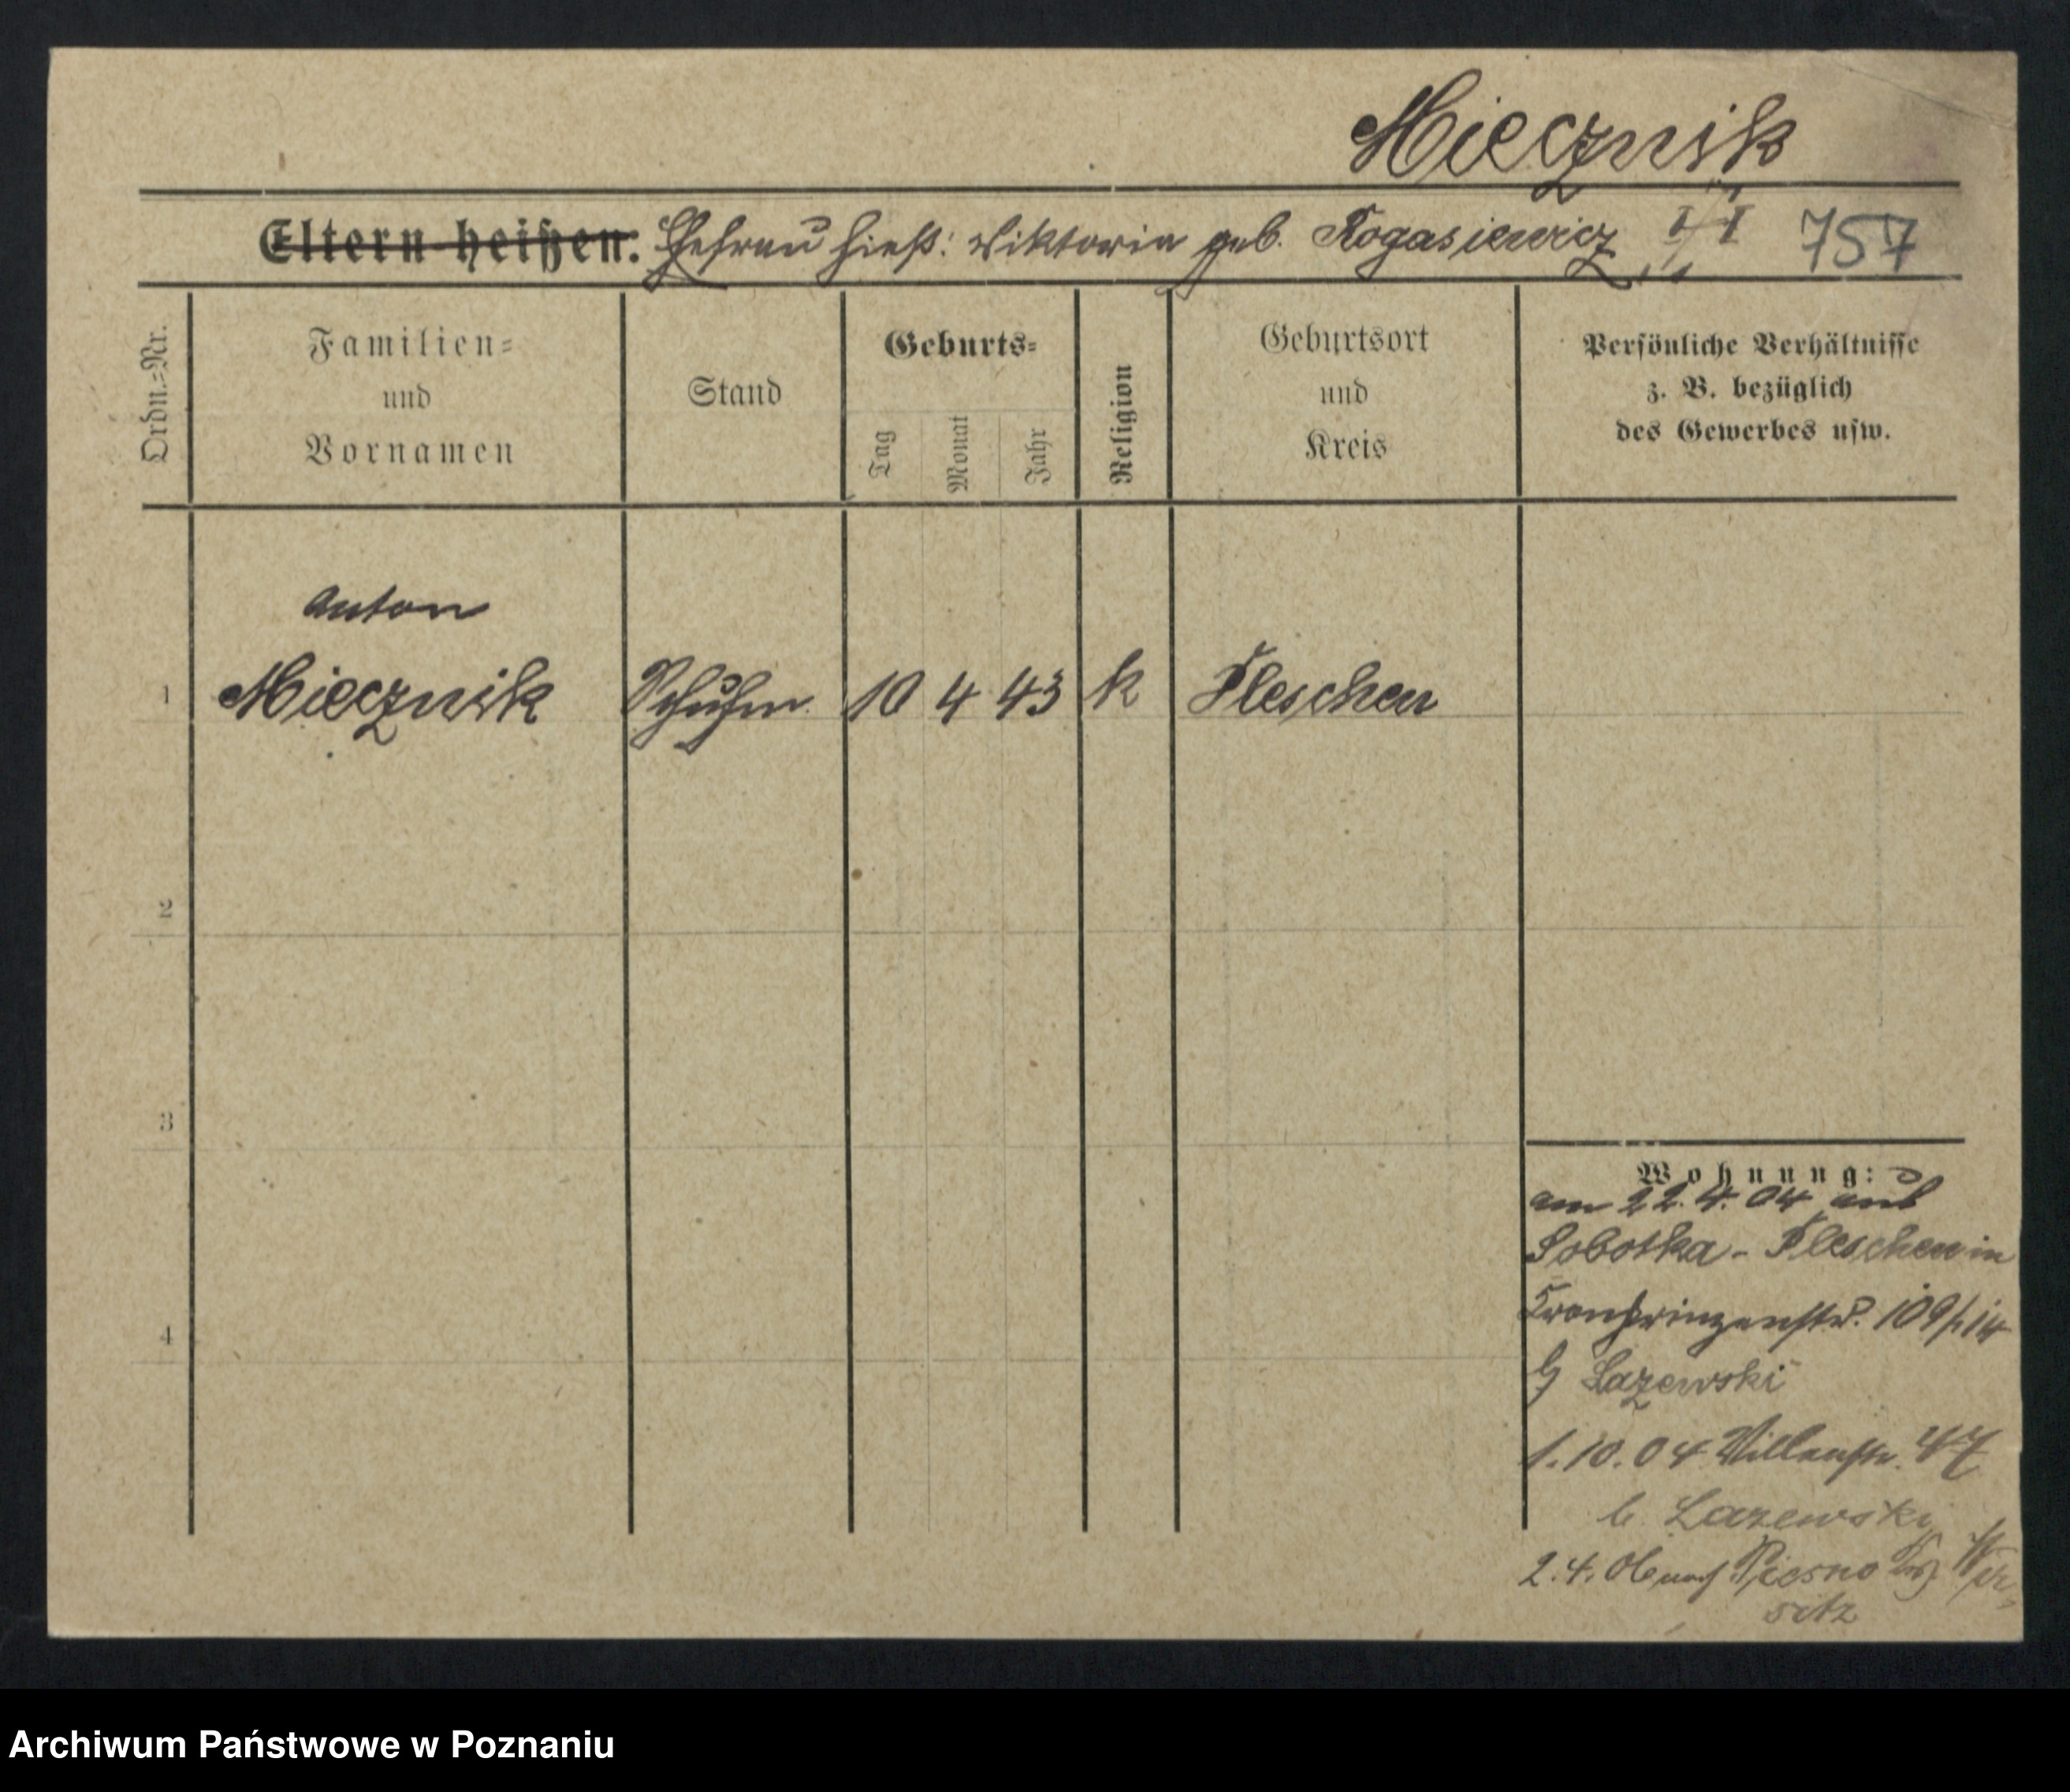 Miecznik
Eltern heißen: Ehefrau hieß: Viktoria geb. Rogasiewicz 757
Ordn.=Nr.
Familien=
und
Vornamen
Stand
Geburts=
Tag
Monat
Jahr
Religion
Geburtsort
und
Kreis
Persönliche Verhältnisse
z. B. bezüglich
des Gewerbes usw.
Anton
1 Miecznik Schuhm. 10 4 43 k Pleschen
2
3
4
Wohnung:
am 22.4.04 aus
Sobotka - Pleschen in
Kronprinzenstr. 109/
Lazewski
1.10.04 Villenstr.
b. Lazewski
2.4.06 nach
sitz
Archiwum Państwowe w Poznaniu